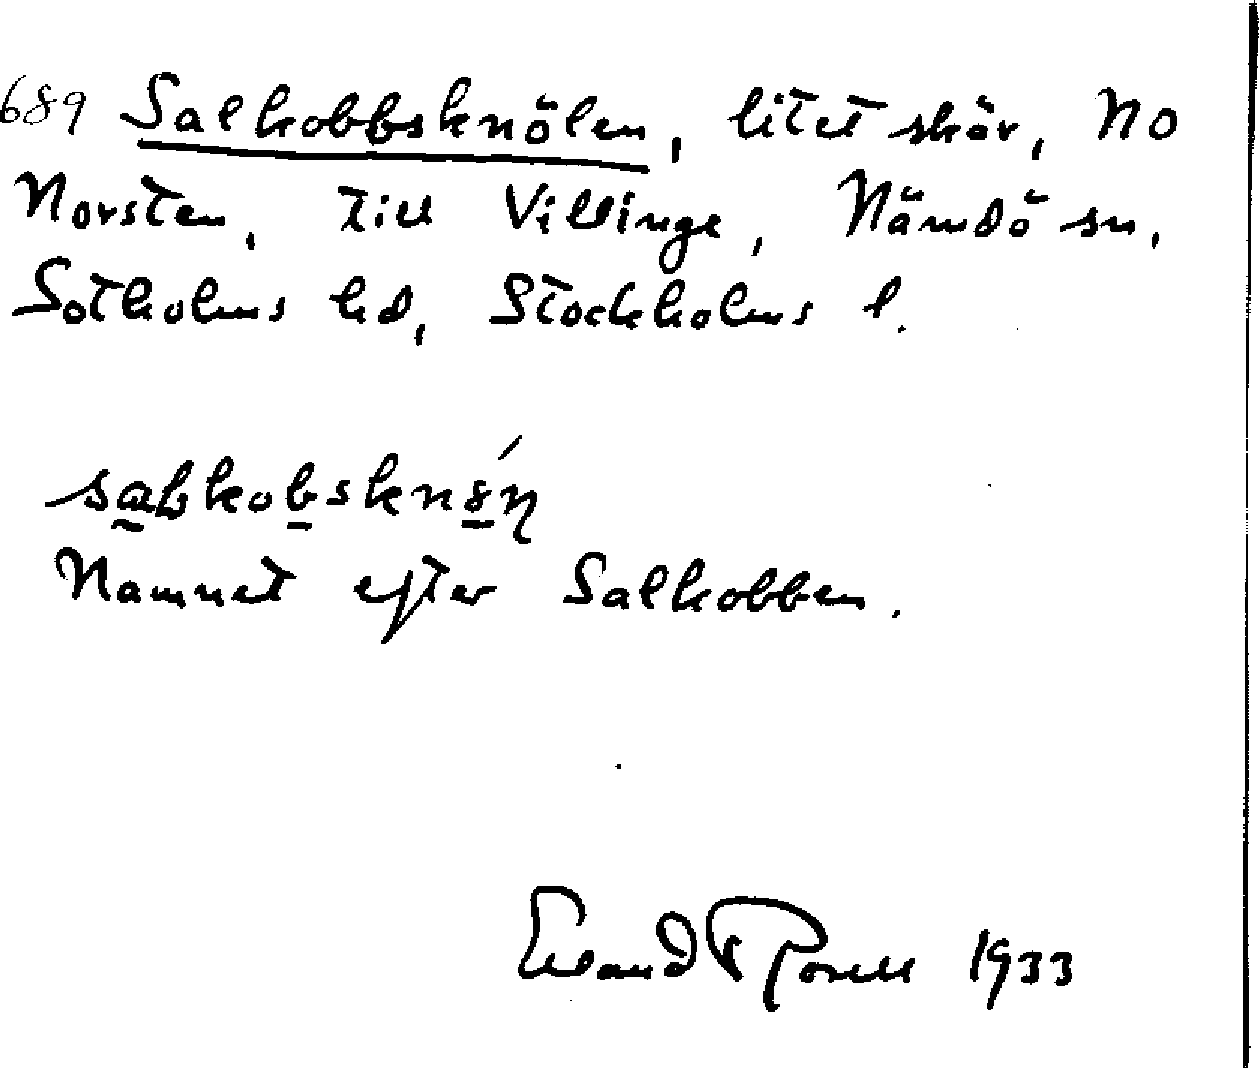 689 Salkobbsknölen, litet skär, NO
Norsten, till Villinge, Nämdö sn,
Sotholms hd, Stockholms l.
Namnet efter Salkobben.
Erland Rosell 1933